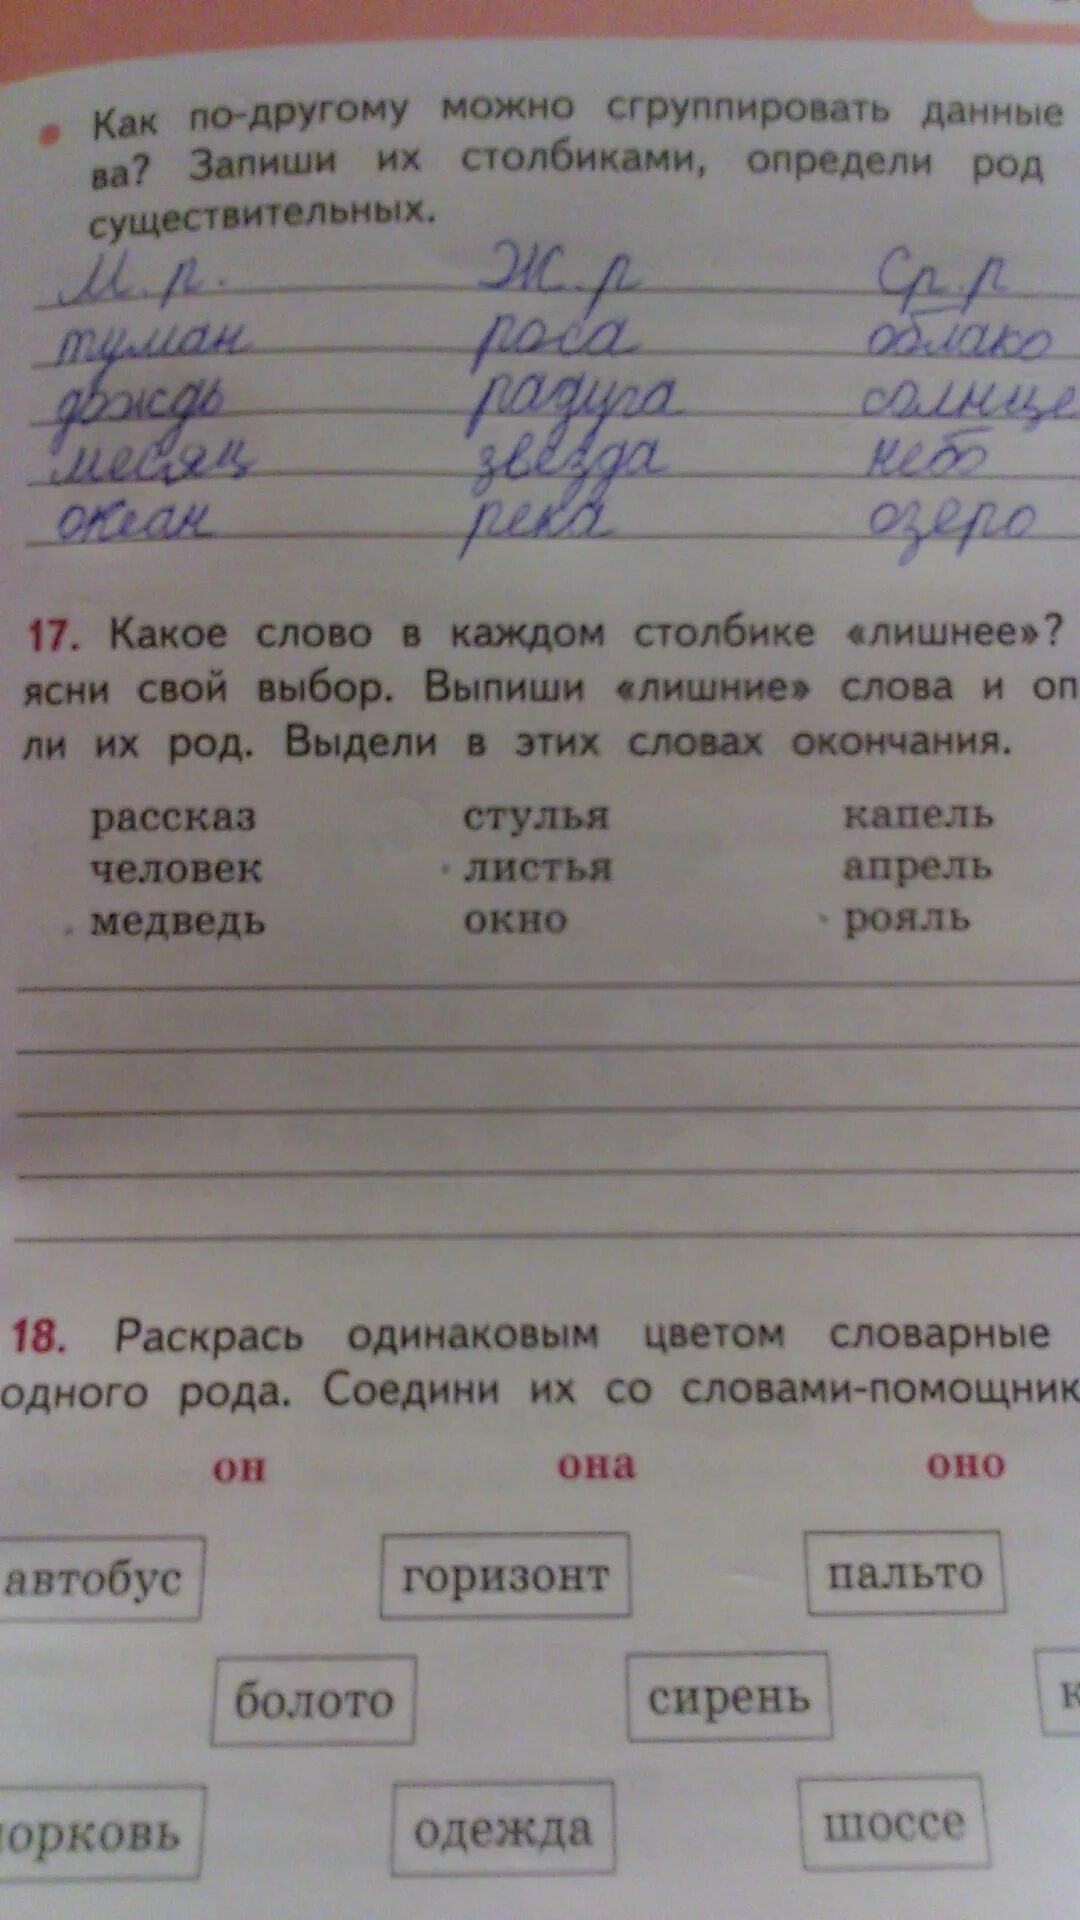 Как по-другому можно сгруппировать данные
ва? Запиши их столбиками, определи род
существительных.
М.р. Ж.р Ср.р
туман роса облако
дождь радуга солнце
месяц звезда небо
океан река озеро
17. Какое слово в каждом столбике «лишнее»?
ясни свой выбор. Выпиши «лишние» слова и оп
ли их род. Выдели в этих словах окончания.
рассказ стулья капель
человек листья апрель
медведь окно рояль
18. Раскрась одинаковым цветом словарные
одного рода. Соедини их со словами-помощник
он она оно
автобус горизонт пальто
болото сирень к
орковь одежда шоссе